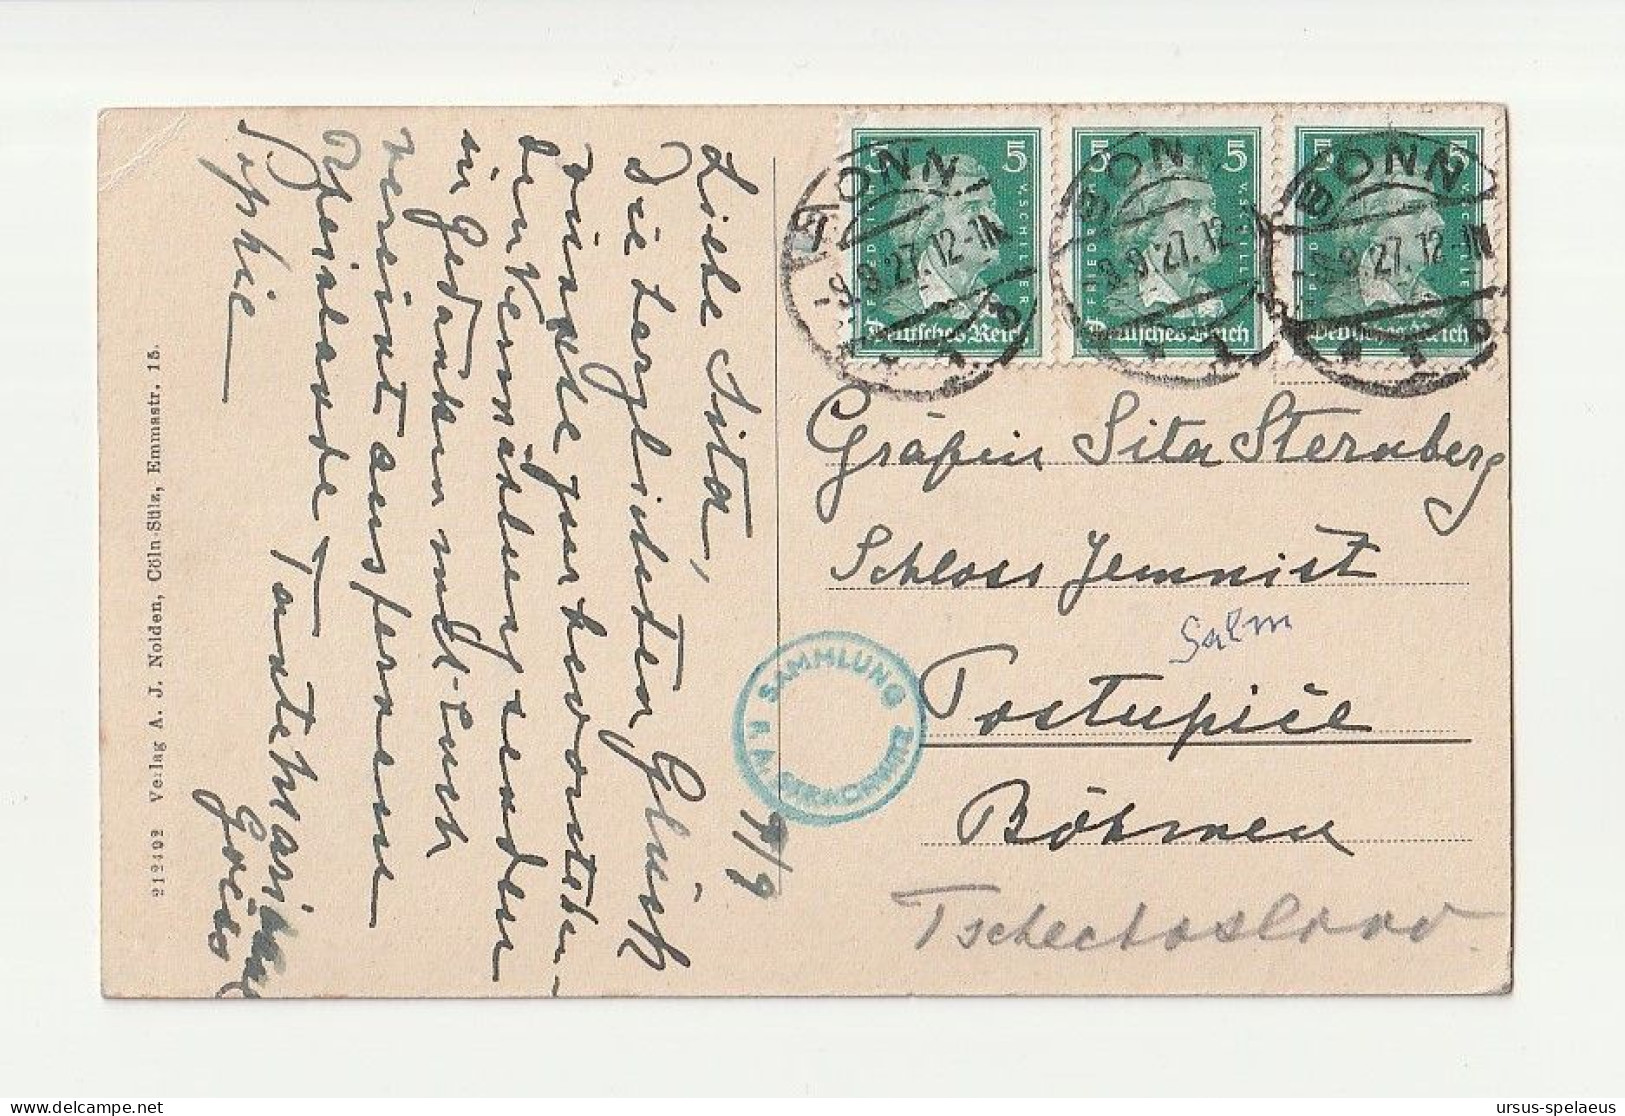 Liebe Sita,
Die herzlichsten Glück
wünsche zur bevorstehen-
den Vermählung senden
in Gedanken mit Euch
vereint aus ferne
Rheinlande Tante Marianne
Sophie
9/9
Gräfin Sita Sternberg
Schloss Jemnist
Salm
Postupiče
Böhmen
Tschechoslov
BONN
-9.9.27.12-1N
BONN
9.9.27.12
BONN
-9.9.27.12-1N
5 5
FRIEDRICH V. SCHILLER
Deutsches Reich
5 5
FRIEDRICH V. SCHILLER
Deutsches Reich
5 5
V. SCHILLER
Deutsches Reich
SAMMLUNG
212492 Verlag A. J. Nolden, Cöln-Sülz, Emmastr. 15.
ursus-spelaeus